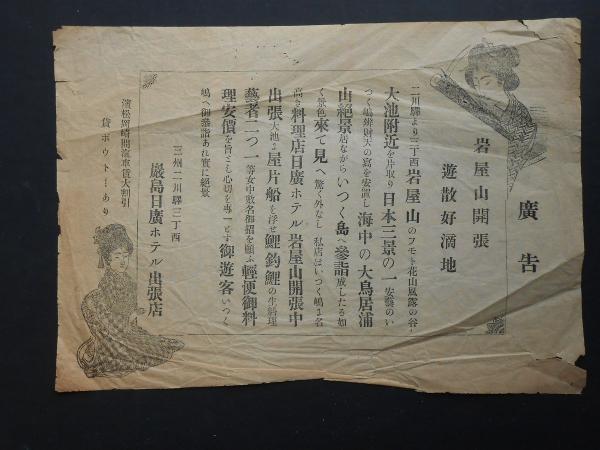 廣告
岩屋山開張
遊散好滴地
二川驛より三丁西岩屋山のフモト花山風露の谷
大池附近を片取り日本三景の一安藝のい
つく嶋辨財天の寫を安置し海中の大鳥居浦
山絶景居ながらいつく島へ參詣成したる如
く景色來て見へ驚く外なし私店はいつく嶋
高き料理店日廣ホテル岩屋山開張中
出張大池に屋片船を浮せ鯉釣鯉の生料理
藝者二つ一等女中數名御招を願ふ輕便御料
理安價を旨とも心切を專一とす御遊客いつく
嶋へ御參詣あれ實に絶景
三州二川驛三丁西
嚴島日廣ホテル出張店
濱松岡崎間滊車賃大割引
貸ボウトーあり